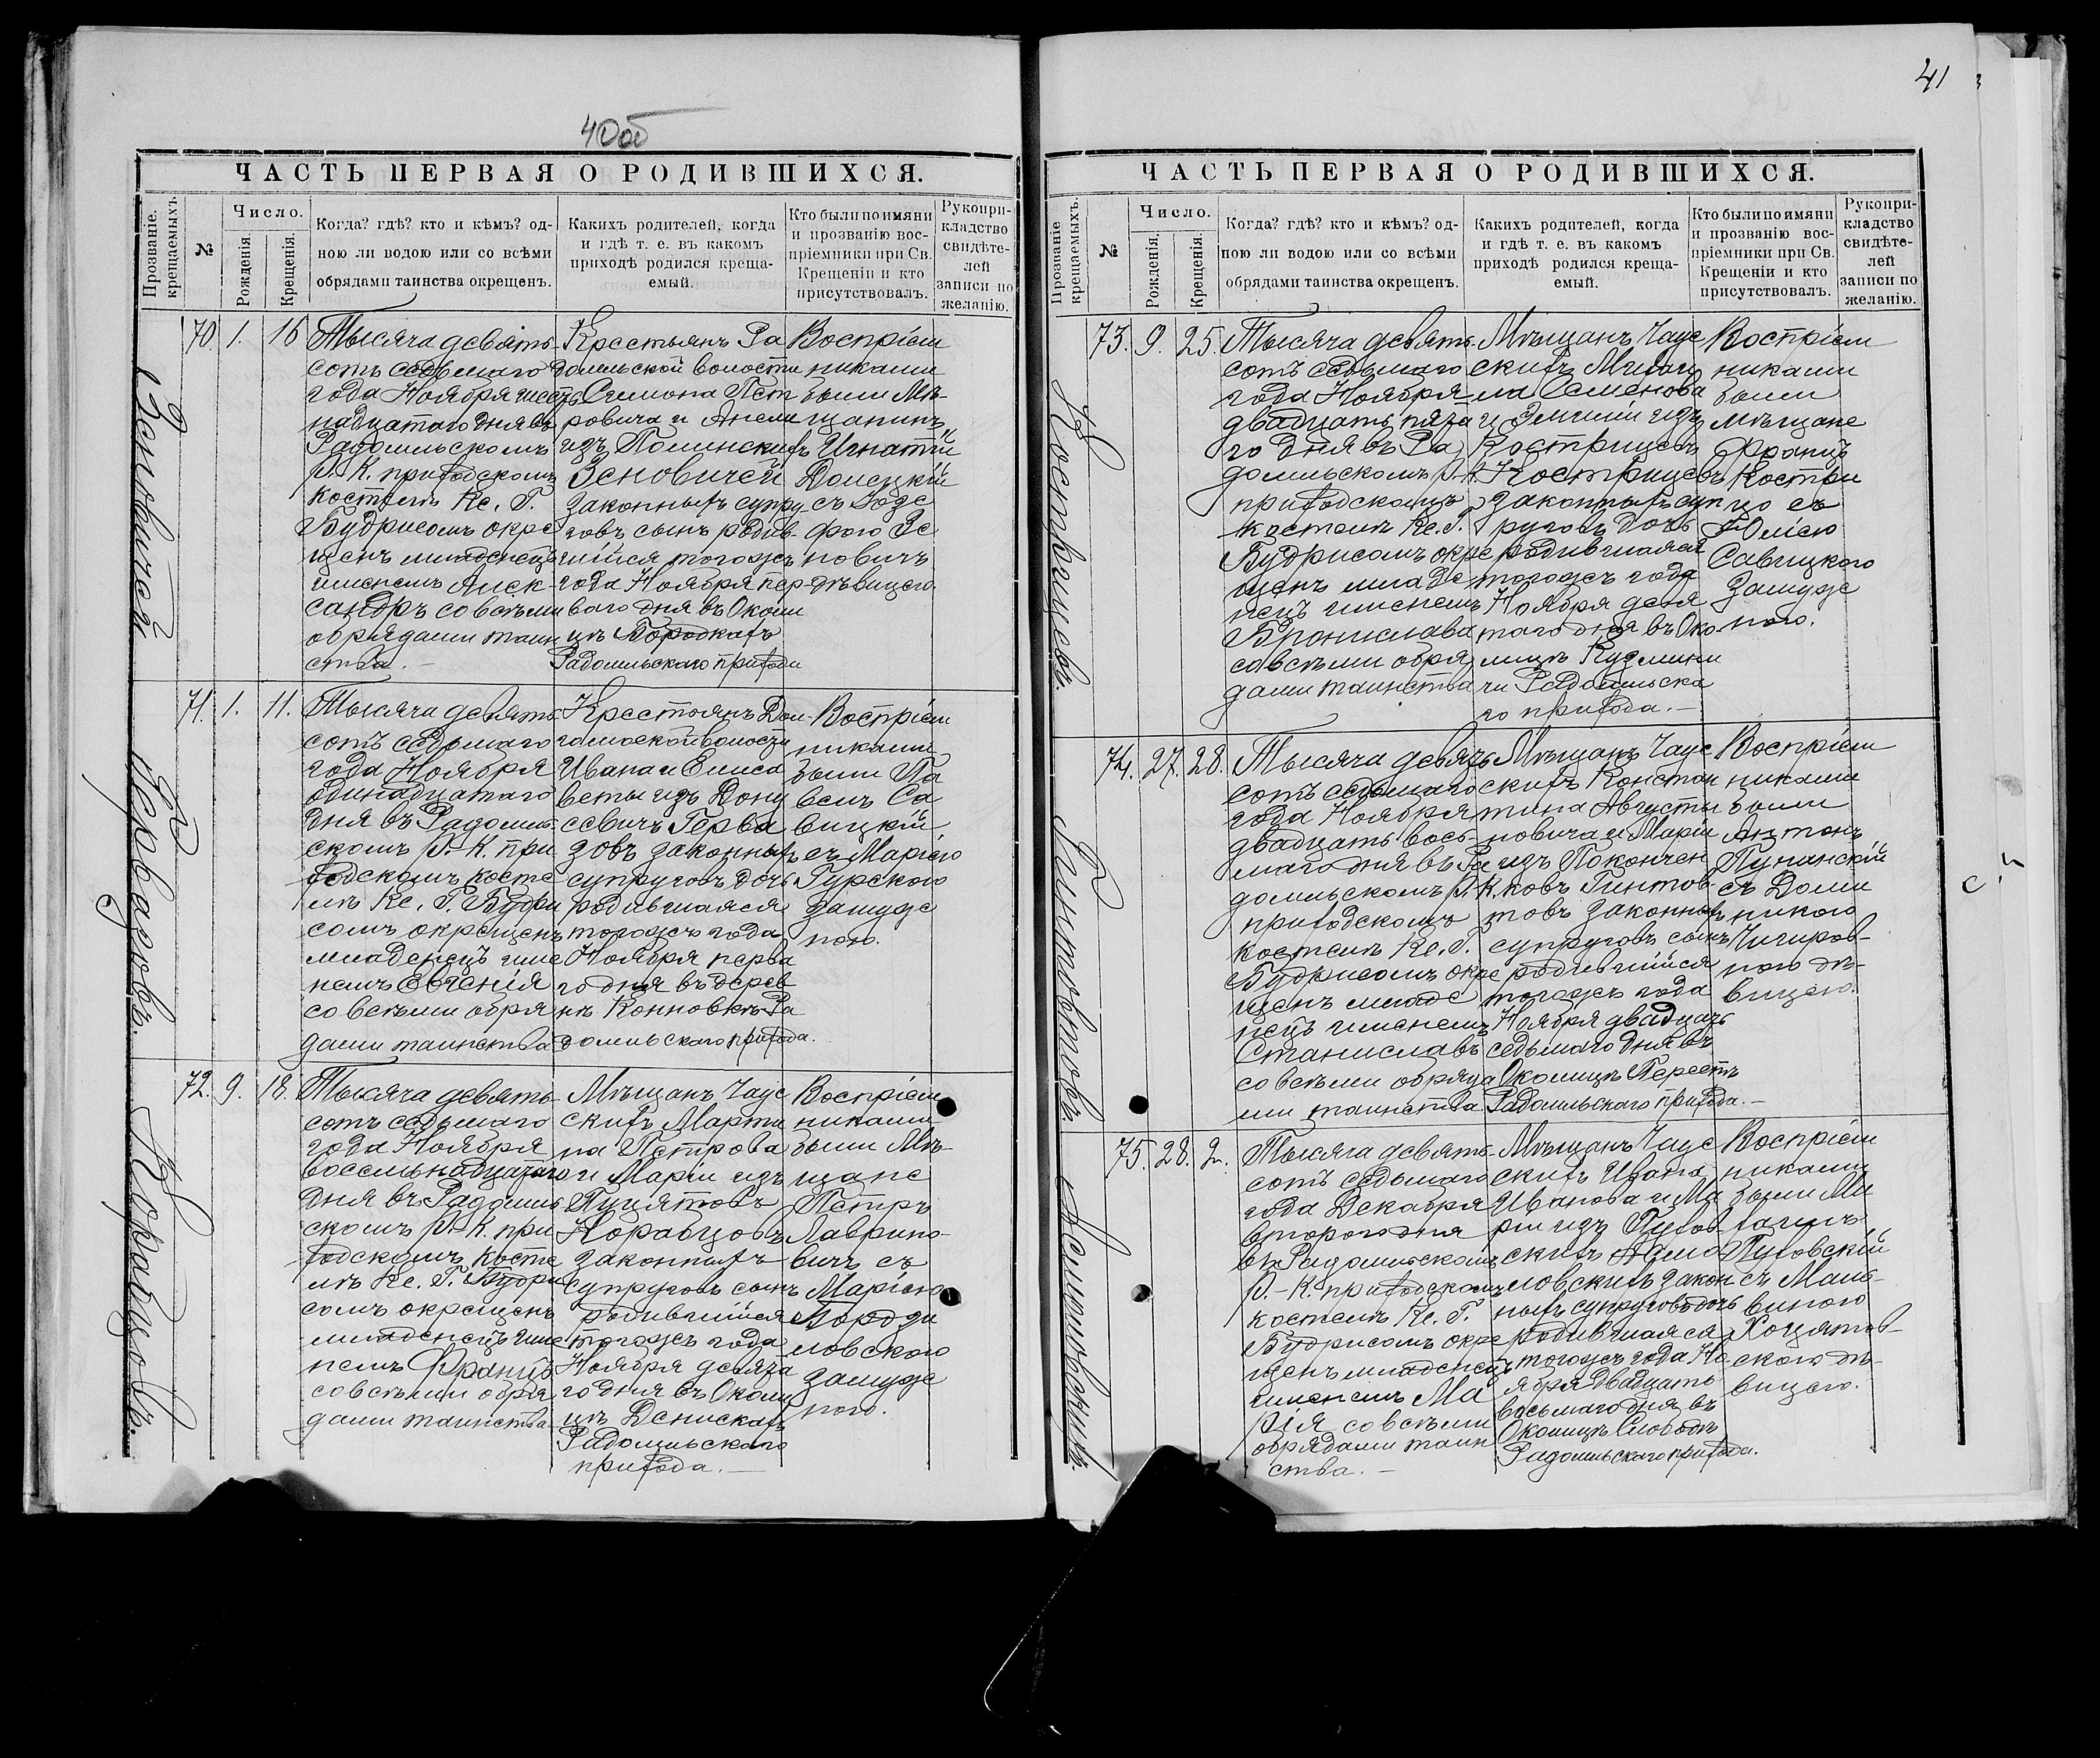 40об
ЧАСТЬ ПЕРВАЯ О РОДИВШИХСЯ.
Прозваніе крещаемыхъ.
№
Число.
Рожденія.
Крещенія.
Когда? гдѣ? кто и кѣмъ? од-
ною ли водою или со всѣми
обрядами таинства окрещенъ.
Какихъ родителей, когда
и гдѣ т. е. въ какомъ
приходѣ родился креща-
емый.
Кто были по имяни
и прозванію вос-
пріемники при Св.
Крещеніи и кто
присутствовалъ.
Рукопри-
кладство
свидѣте-
лей
записи по
желанію.
Зеновичей
70. 1. 16
Тысяча девять
сотъ седьмаго
года Ноября шест
надцатаго дня въ
Радомльскомъ
Р. К. приходскомъ
костелѣ Кс. Г.
Будрисомъ окре
щенъ младенецъ
именемъ Алек-
сандръ со всѣми
обрядами таин
ства.
Крестьянъ Ра
домльской волости
Симона Пет
ровича и Анели
изъ Полинскихъ
Зеновичей
законныхъ супру
говъ сынъ родив-
шійся тогожъ
года Ноября пер-
ваго дня въ Околи
цѣ Бородкахъ
Радомльскаго прихода
Воспріем
никами
были Мѣ-
щанинъ
Игнатій
Долецкій
съ Юзе
фою Зе
новичъ
дѣвицею.
Гервазовъ.
71. 1. 11.
Тысяча девять
сотъ седьмаго
года Ноября
одинадцатаго
дня въ Радомль-
скомъ Р.-К. при
ходскомъ косте
лѣ Кс. Г. Будри
сомъ окрещенъ
младенецъ име
немъ Евгенія
со всѣми обря
дами таинства
Крестьянъ Дол-
гомоской волости
Ивана и Елиса
веты изъ Дону
севичъ Герва
зовъ законныхъ
супруговъ дочь
родившаяся
тогожъ года
Ноября перва
го дня въ дерев
нѣ Конновкѣ Ра
домльскаго прихода.
Воспріем
никами
были Па
велъ Са
вицкій
съ Маріею
Гурскою
замуже
ною.
Норавцовъ.
72. 9. 18.
Тысяча девять
сотъ седьмаго
года Ноября
восемьнадцатаго
дня въ Радомль
скомъ Р.-К. при
ходскомъ косте
лѣ Кс. Г. Будри
сомъ окрещенъ
младенецъ име
немъ Францъ
со всѣми обря
дами таинства
Мѣщанъ Чаус
скихъ Марти
на Петрова
и Маріи изъ
Пуцятовъ
Норавцовъ
законныхъ
супруговъ сынъ
родившійся
тогожъ года
Ноября девята
го дня въ Околи
цѣ Денискахъ
Радомльскаго
прихода.
Воспріем
никами
были Мѣ-
щане
Петръ
Лаврино-
вичъ съ
Маріею
Бордзи
ловскою
замуже
ною.
41
ЧАСТЬ ПЕРВАЯ О РОДИВШИХСЯ.
Прозваніе крещаемыхъ.
№
Число.
Рожденія.
Крещенія.
Когда? гдѣ? кто и кѣмъ? од-
ною ли водою или со всѣми
обрядами таинства окрещенъ.
Какихъ родителей, когда
и гдѣ т. е. въ какомъ
приходѣ родился креща-
емый.
Кто были по имяни
и прозванію вос-
пріемники при Св.
Крещеніи и кто
присутствовалъ.
Рукопри-
кладство
свидѣте-
лей
записи по
желанію.
Костріцевъ.
73. 9. 25.
Тысяча девять
сотъ седьмаго
года Ноября
двадцать пята
го дня въ Ра
домльскомъ Р.-К.
приходскомъ
костелѣ Кс. Г.
Будрисомъ окре
щенъ младе
нецъ именемъ
Бронислава
со всѣми обря
дами таинства
Мѣщанъ Чаус
скихъ Михаи
ла Семенова
и Эмиліи изъ
Костріцевъ
Костріцевъ
законныхъ суп
руговъ дочь
родившаяся
тогожъ года
Ноября девя
таго дня въ Око
лицѣ Кузмини
чи Радомльска
го прихода.
Воспріем
никами
были
мѣщане
Францъ
Костри
цо съ
Юліею
Савицкою
замуже
ною.
Гинтовтовъ.
74. 27. 28.
Тысяча девять
сотъ седьмаго
года Ноября
двадцать вось-
маго дня въ Ра
домльскомъ Р.-К.
приходскомъ
костелѣ Кс. Г.
Будрисомъ окре
щенъ младе
нецъ именемъ
Станиславъ
со всѣми обряда
ми таинства
Мѣщанъ Чаус
скихъ Констан
тина Августи
новича и Маріи
изъ Покончен
ковъ Гинтов-
товъ законныхъ
супруговъ сынъ
родившійся
тогожъ года
Ноября двадцать
седьмаго дня въ
Околицѣ Перестъ
Радомльскаго прихода.
Воспріем
никами
были
Антонъ
Пунанскій
съ Доми
никою
Чигиров-
ною дѣ-
вицею.
75. 28. 2.
Тысяча девять
сотъ седьмаго
года Декабря
второго дня
въ Радомльскомъ
Р.-К. приходскомъ
костелѣ Кс. Г.
Будрисомъ окре
щенъ младенецъ
именемъ Ма
рія со всѣми
обрядами таин
ства.
Мѣщанъ Чаус
скихъ Ивана
Иванова и Ма
ріи изъ Пухов
скихъ
законныхъ супруговъ дочь
родившаяся
тогожъ года Но
ября двадцать
восьмаго дня въ
Околицѣ Слободѣ
Радомльскаго прихода.
Воспріем
никами
были Ми
хаилъ
Пуховскій
съ Маль-
виною
Хоцятов-
скою дѣ-
вицею.